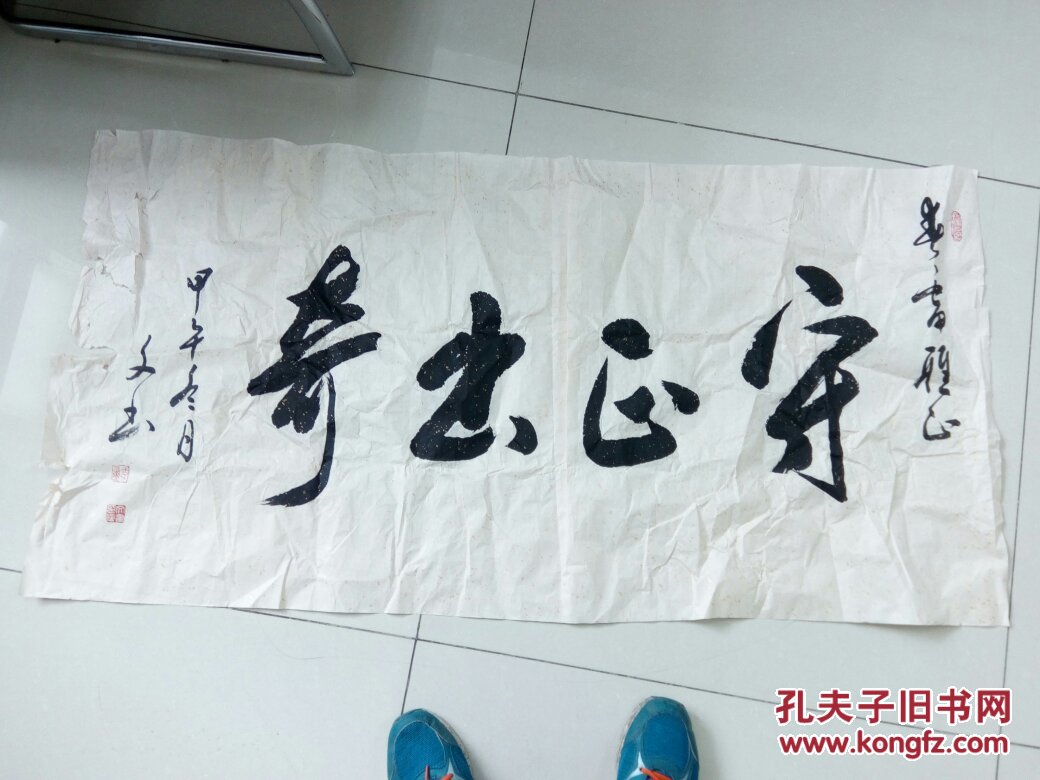 春雷雅正
守正出奇
甲午冬月
文書
孔夫子旧书网
www.kongfz.com